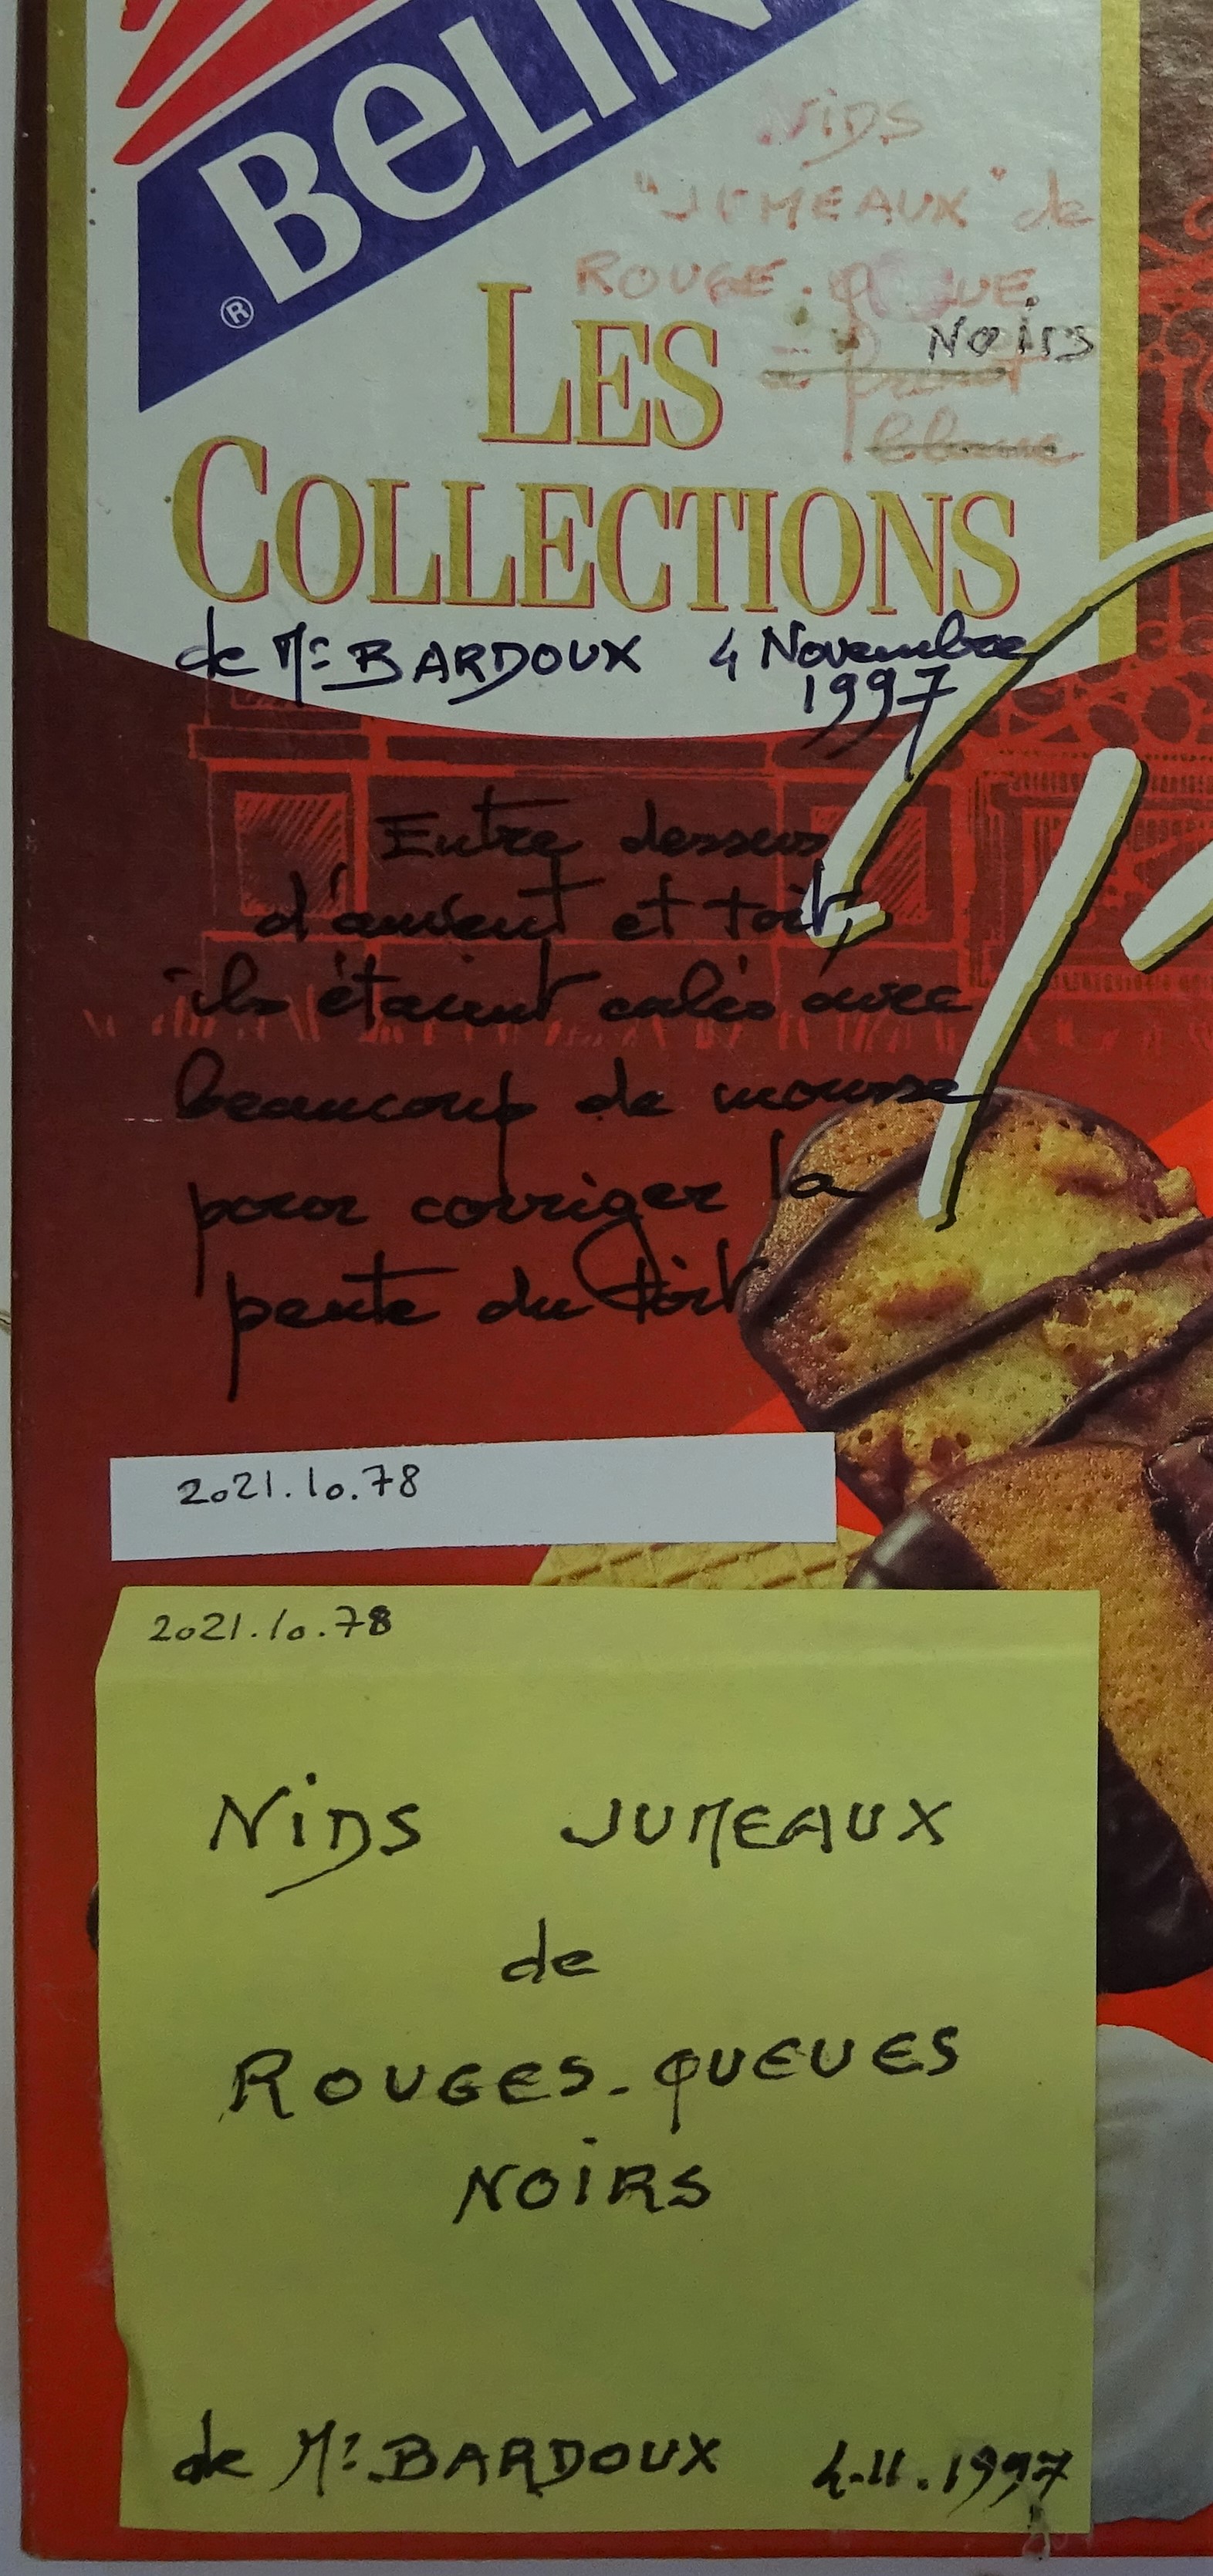 BeLIN
®
Nids
"JUMEAUX" de
ROUGE-QUEUE
Noirs
à front
blanc
LES
COLLECTIONS
de Mr BARDOUX 4 Novembre
1997
Entre dessus
d'auvent et toit,
ils étaient calés avec
beaucoup de mousse
pour corriger la
pente du toit
2021.10.78
2021.10.78
NiDS JUMEAUX
de
ROUGES-QUEUES
NOIRS
de Mr BARDOUX 4.11.1997